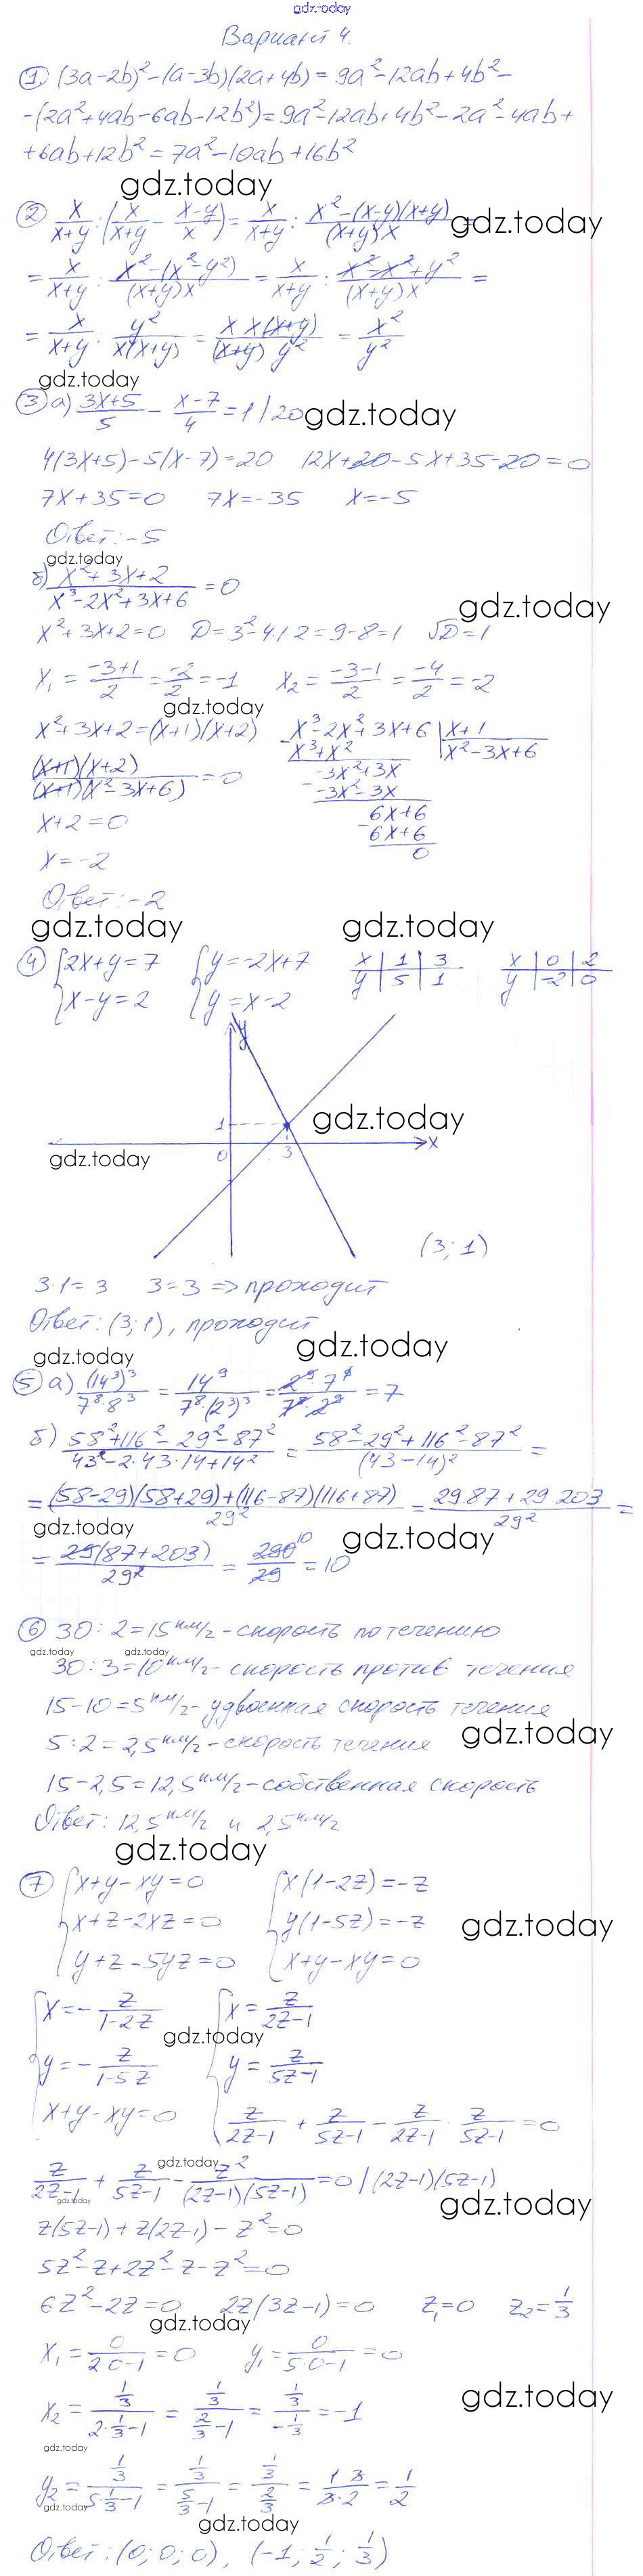 gdz.today
Вариант 4.
① (3a-2b)²-(a-3b)(2a+4b)=9a²-12ab+4b²-
-(2a²+4ab-6ab-12b²)=9a²-12ab+4b²-2a²-4ab+
+6ab+12b²=7a²-10ab+16b²
gdz.today
② x/(x+y) : (x/(x+y) - (x-y)/x) = x/(x+y) : (x²-(x-y)(x+y))/((x+y)x) =
gdz.today
= x/(x+y) : (x²-(x²-y²))/((x+y)x) = x/(x+y) : (x²-x²+y²)/((x+y)x) =
= x/(x+y) : y²/(x(x+y)) = (x x(x+y))/((x+y) y²) = x²/y²
gdz.today
③ а) (3x+5)/5 - (x-7)/4 = 1 /20
gdz.today
4(3x+5)-5(x-7)=20 12x+20-5x+35-20=0
7x+35=0 7x=-35 x=-5
Ответ: -5
gdz.today
б) (x²+3x+2)/(x³-2x²+3x+6) = 0
gdz.today
x²+3x+2=0 D=3²-4·1·2=9-8=1 √D=1
x₁ = (-3+1)/2 = -2/2 = -1 x₂ = (-3-1)/2 = -4/2 = -2
gdz.today
x²+3x+2=(x+1)(x+2) x³-2x²+3x+6 | x+1
x³+x² x²-3x+6
((x+1)(x+2))/((x+1)(x²-3x+6)) = 0
-3x²+3x
-3x²-3x
x+2=0 6x+6
6x+6
x=-2 0
Ответ: -2
gdz.today gdz.today
④ {2x+y=7 {y=-2x+7 x | 1 | 3 x | 0 | 2
{x-y=2 {y=x-2 y | 5 | 1 y | -2 | 0
y
1
gdz.today
x
gdz.today
0 3
(3; 1)
3·1=3 3=3 => проходит
Ответ: (3; 1), проходит
gdz.today gdz.today
⑤ а) (14³)³/(7⁸·8³) = 14⁹/(7⁸·(2³)³) = (2⁹·7⁹)/(7⁸·2⁹) = 7
б) (58²+116²-29²-87²)/(43²-2·43·14+14²) = (58²-29²+116²-87²)/(43-14)² =
= ((58-29)(58+29)+(116-87)(116+87))/29² = (29·87+29·203)/29² =
gdz.today gdz.today
= 29(87+203)/29² = 290/29 = 10
⑥ 30:2=15 км/ч - скорость по течению
gdz.today gdz.today
30:3=10 км/ч - скорость против течения
15-10=5 км/ч - удвоенная скорость течения
5:2=2,5 км/ч - скорость течения
gdz.today
15-2,5=12,5 км/ч - собственная скорость
Ответ: 12,5 км/ч и 2,5 км/ч
gdz.today
⑦ {x+y-xy=0 {x(1-2z)=-z
{x+z-2xz=0 {y(1-5z)=-z
gdz.today
{y+z-5yz=0 {x+y-xy=0
{x=-z/(1-2z) {x=z/(2z-1)
gdz.today
{y=-z/(1-5z) {y=z/(5z-1)
{x+y-xy=0 {z/(2z-1) + z/(5z-1) - z/(2z-1) · z/(5z-1) = 0
gdz.today
z/(2z-1) + z/(5z-1) - z²/((2z-1)(5z-1)) = 0 /(2z-1)(5z-1)
gdz.today
gdz.today
z(5z-1)+z(2z-1)-z²=0
5z²-z+2z²-z-z²=0
6z²-2z=0 2z(3z-1)=0 z₁=0 z₂=1/3
gdz.today
x₁ = 0/(2·0-1) = 0 y₁ = 0/(5·0-1) = 0
gdz.today
x₂ = (1/3)/(2·1/3-1) = (1/3)/(2/3-1) = (1/3)/(-1/3) = -1
gdz.today
y₂ = (1/3)/(5·1/3-1) = (1/3)/(5/3-1) = (1/3)/(2/3) = (1·3)/(3·2) = 1/2
gdz.today
gdz.today
Ответ: (0; 0; 0), (-1; 1/2; 1/3)